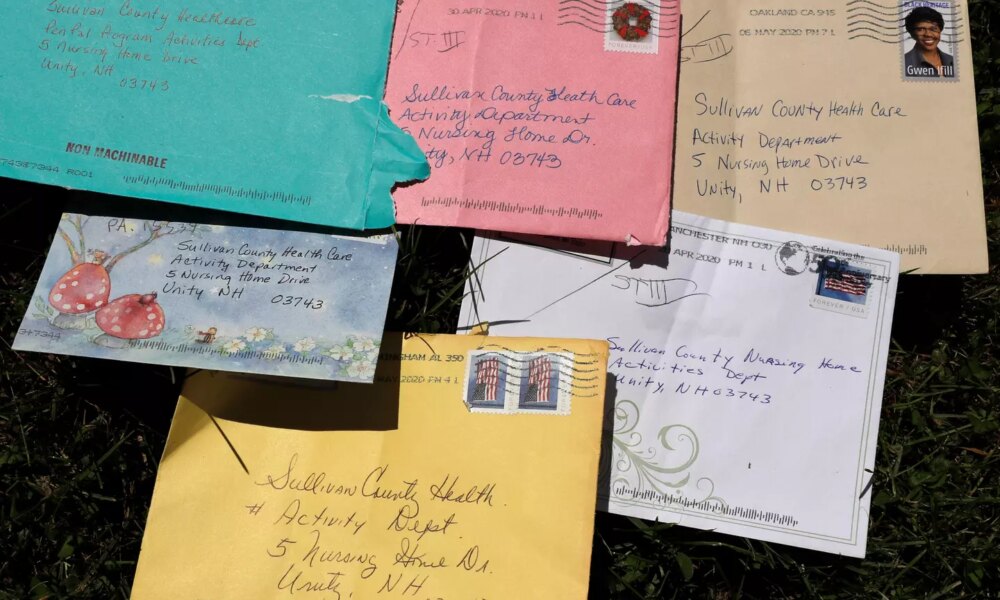 Sullivan County Healthcare
Pen Pal Program Activities Dept
5 Nursing Home Drive
Unity, NH
03743
NON MACHINABLE
R001
30 APR 2020 PM 1 L
FOREVER/USA
ST. III
Sullivan County Heath Care
Activity Department
5 Nursing Home Dr.
ity, NH 03743
OAKLAND CA 945
06 MAY 2020 PM 7 L
BLACK HERITAGE
Gwen Ifill
ST III
Sullivan County Health Care
Activity Department
5 Nursing Home Drive
Unity, NH 03743
PA. 15537
Sullivan County Health Care
Activity Department
5 Nursing Home Drive
Unity NH 03743
ANCHESTER NH 030
APR 2020 PM 1 L
Celebrating the
FOREVER / USA
ST III
Sullivan County Nursing Home
Activities Dept
Unity, NH 03743
INGHAM AL 350
MAY 2020 PM 4 L
Sullivan County Health
# Activity Dept.
5 Nursing Home Dr.
Unity, NH